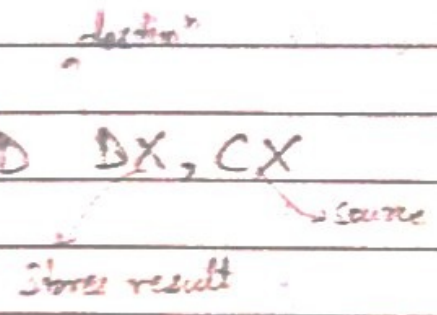 destinⁿ
D DX, CX
source
Stores result